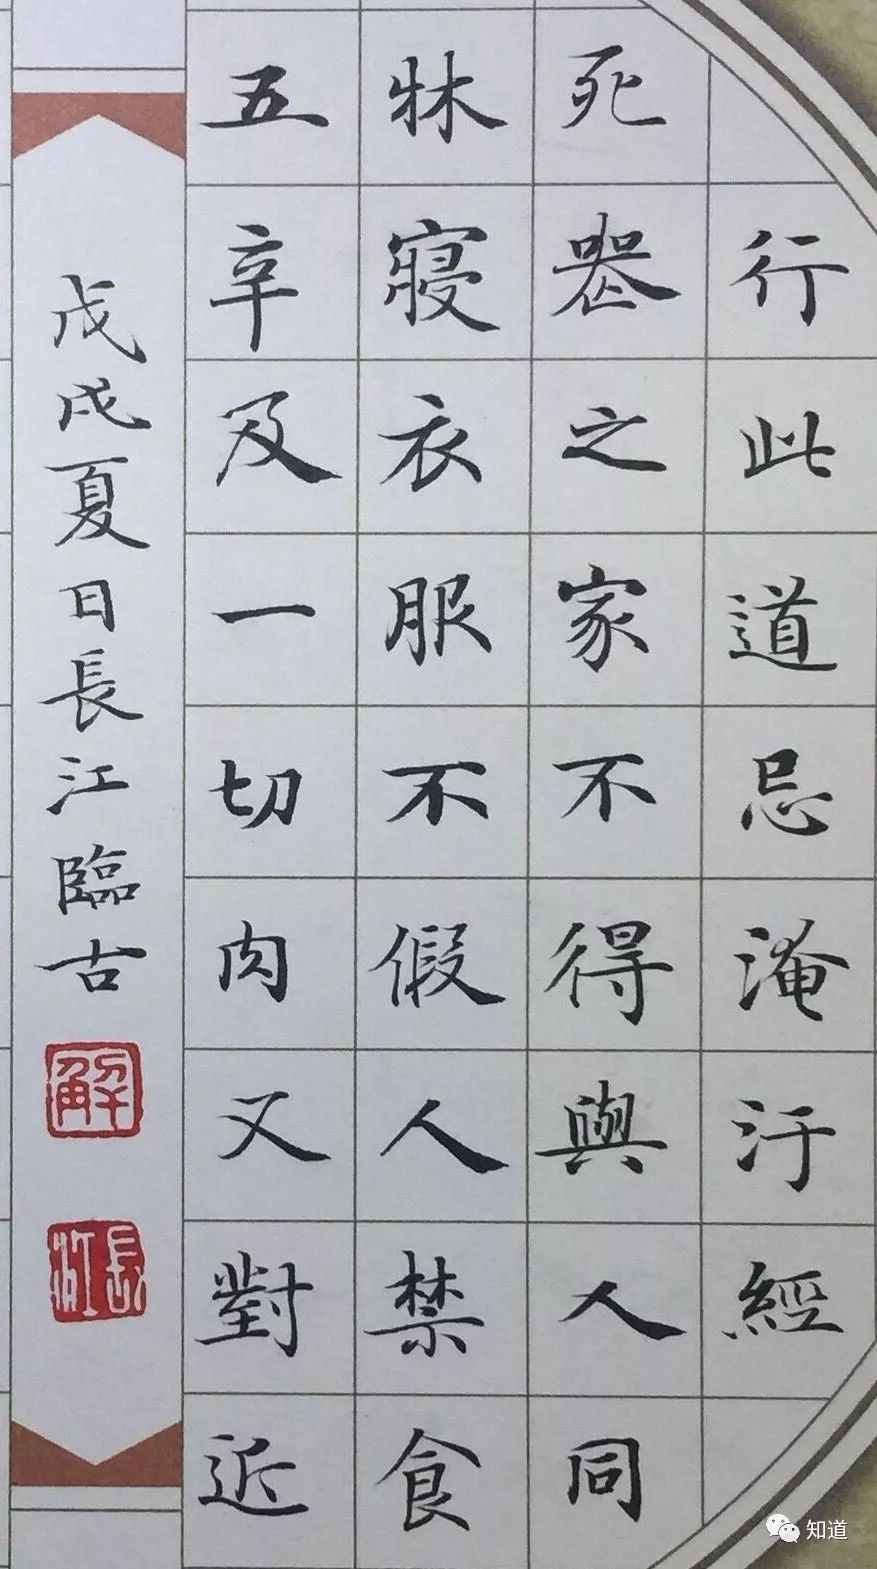 行此道忌淹汙經
死喪之家不得與人同
牀寢衣服不假人禁食
五辛及一切肉又對近
戊戌夏日長江臨古
解
長江
知道